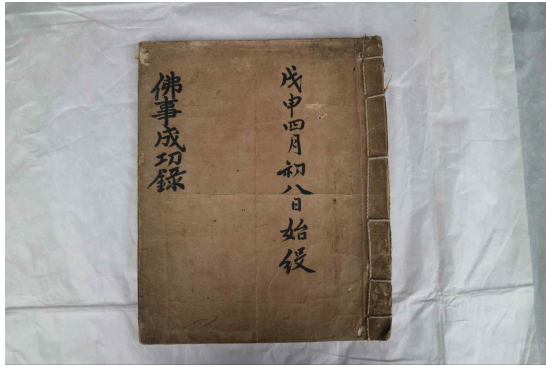 戊申四月初八日始役
佛事成功錄